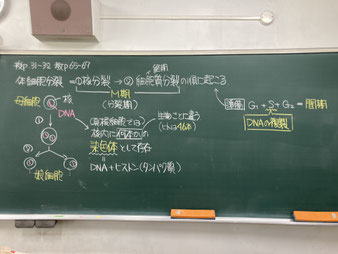 教p.31~32 教p.65~67
終期
体細胞分裂 = ①核分裂 → ②細胞質分裂の順に起こる
M期
(分裂期)
準備 G₁ + S + G₂ = 間期
DNAの複製
母細胞
核
DNA
真核細胞では
核内に何本かの
染色体として存在
生物ごとに違う
(ヒトは46本)
DNA+ヒストン(タンパク質)
娘細胞